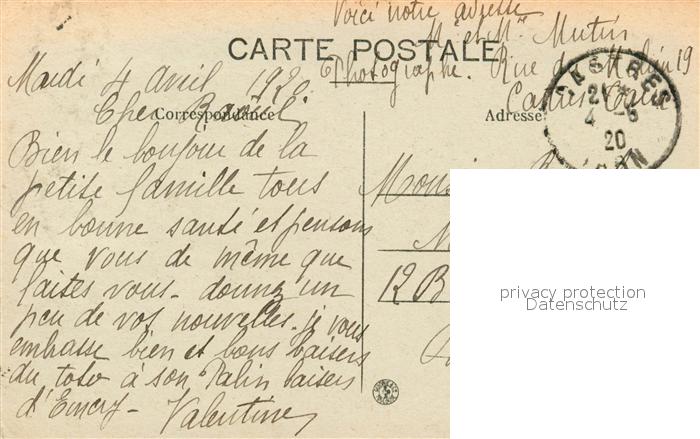 Voici notre adresse
M. et Mme Mutin
CARTE POSTALE
Photographe. Rue du Moulin 19
Castres Tarn
Mardi 4 avril 1920
Cher
Correspondance
Adresse
CASTRES
21
4 - 5
20
Bien le bonjour de la
petite famille tous
en bonne santé et pensons
que vous de même que
faites vous - donnez un
peu de vos nouvelles. je vous
embrasse bien et bons baisers
du toto à son baisers
Valentine
Monsi
12 B
privacy protection
Datenschutz